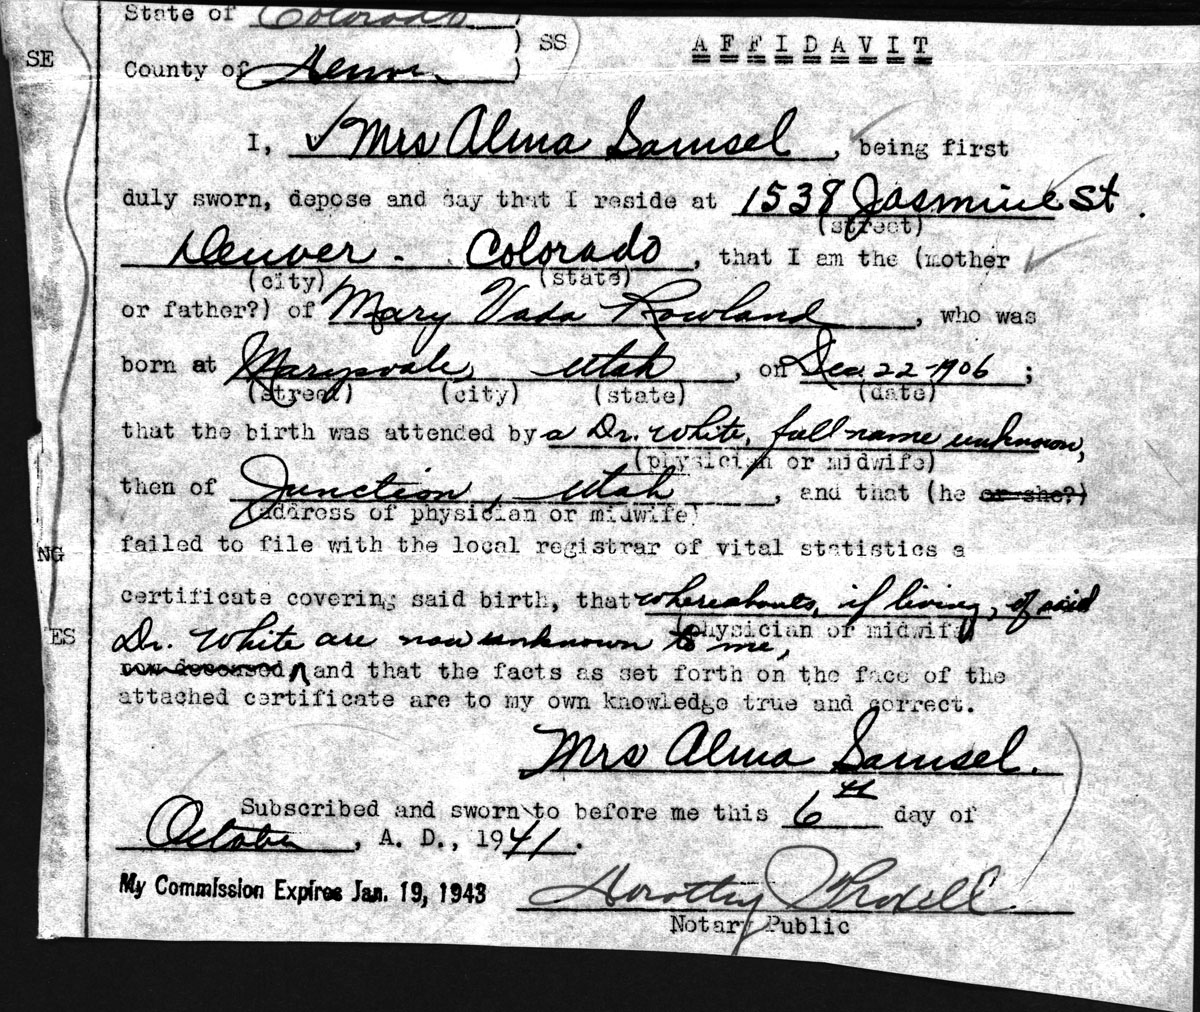 State of Colorado )
SE
SS
AFFIDAVIT
County of Denver )
I, Mrs Alma Samsel, being first
duly sworn, depose and say that I reside at 1538 Jasmine St.
(street)
Denver. Colorado, that I am the (mother
(city) (state)
or father?) of Mary Vada Rowland, who was
born at Marysvale, Utah, on Dec. 22-1906;
(street) (city) (state) (date)
that the birth was attended by a Dr. White, full name unknown,
(physician or midwife)
then of Junction, Utah, and that (he or she?)
(address of physician or midwife)
failed to file with the local registrar of vital statistics a
NG
certificate covering said birth, that whereabouts, if living, of said
(physician or midwife)
ES
Dr. White are now unknown to me,
now deceased, and that the facts as set forth on the face of the
attached certificate are to my own knowledge true and correct.
Mrs Alma Samsel.
Subscribed and sworn to before me this 6th day of
October, A. D., 1941.
My Commission Expires Jan. 19, 1943
Dorothy
Notary Public